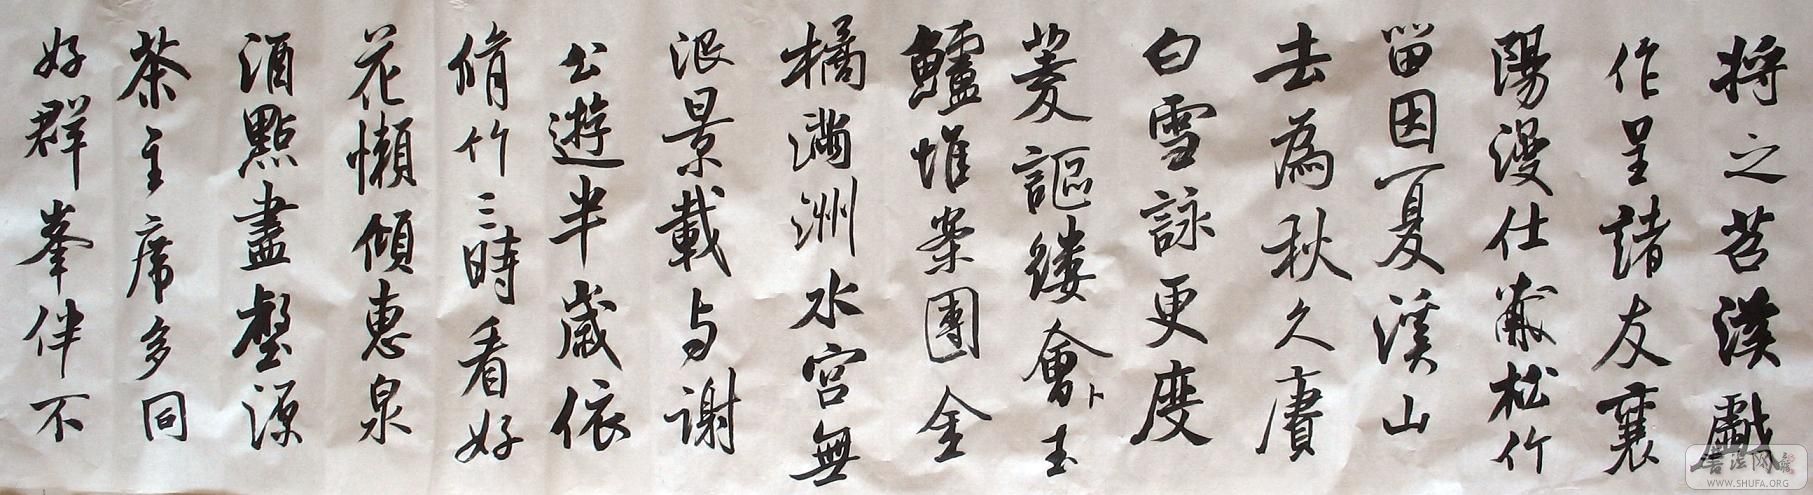 將之苕溪戲
作呈諸友襄
陽漫仕黻松竹
留因夏溪山
去為秋久賡
白雪詠更度
菱謳縷會卜玉
鱸堆案團金
橘滿洲水宮無
限景載与謝
公遊半歲依
脩竹三時看好
花懶傾惠泉
酒點盡壑源
茶主席多同
好群峯伴不
书法网
WWW.SHUFA.ORG